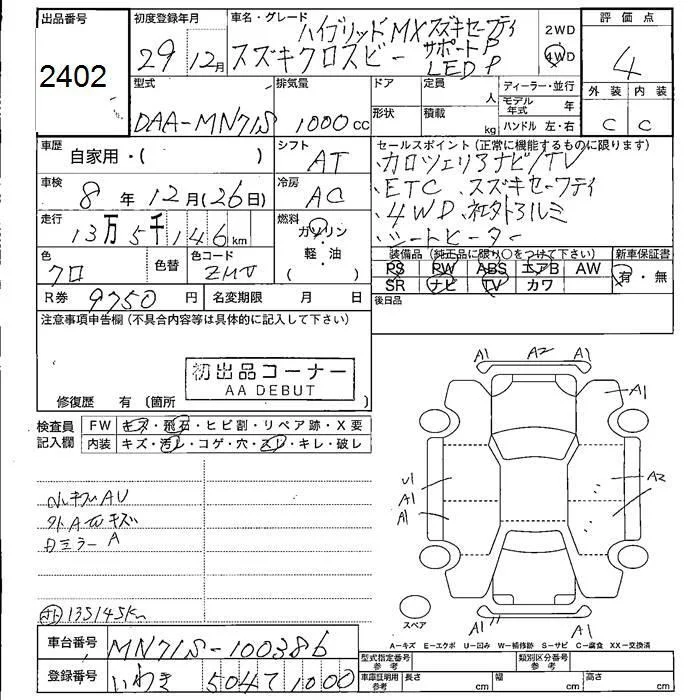 出品番号
2402
初度登録年月
29 12月
車名・グレード
ハイブリッドMX スズキセーフティ
スズキクロスビー サポートP
LED P
2WD
4WD
評価点
4
外装 内装
C C
型式
DAA-MN71S
排気量
1000 cc
ドア
形状
定員
人
積載
kg
ディーラー・並行
モデル年式 年
ハンドル 左・右
車歴
自家用・( )
シフト
AT
車検
8年12月(26日)
冷房
AC
走行
13万5千146km
燃料
ガソリン
・
軽・油
( )
色
クロ
色替
色コード
ZMV
R券 9750円
名変期限 月 日
セールスポイント (正常に機能するものに限ります)
・カロツェリアナビ/TV
・ETC、スズキセーフティ
・4WD、社外アルミ
・シートヒーター
装備品 (純正品に限り○をつけて下さい)
PS PW ABS エアB AW
SR ナビ TV カワ
新車保証書
有・無
後日品
注意事項申告欄 (不具合内容等は具体的に記入して下さい)
初出品コーナー
AA DEBUT
修復歴 有 〔箇所 〕
検査員記入欄
FW キズ・飛石・ヒビ割・リペア跡・X要
内装 キズ・汚レ・コゲ・穴・スレ・キレ・破レ
キズ
ミラー A
135145km
A1 A2 A1
A1
U1
A1
A1
A2
A1 A1
スペア
A−キズ E−エクボ U−凹み W−補修跡 S−サビ C−腐食 XX−交換済
車台番号 MN71S-100386
登録番号 いわき 504 1000
型式指定番号 参考
類別区分番号 参考
車庫証明用 参考
長さ cm
幅 cm
高さ cm